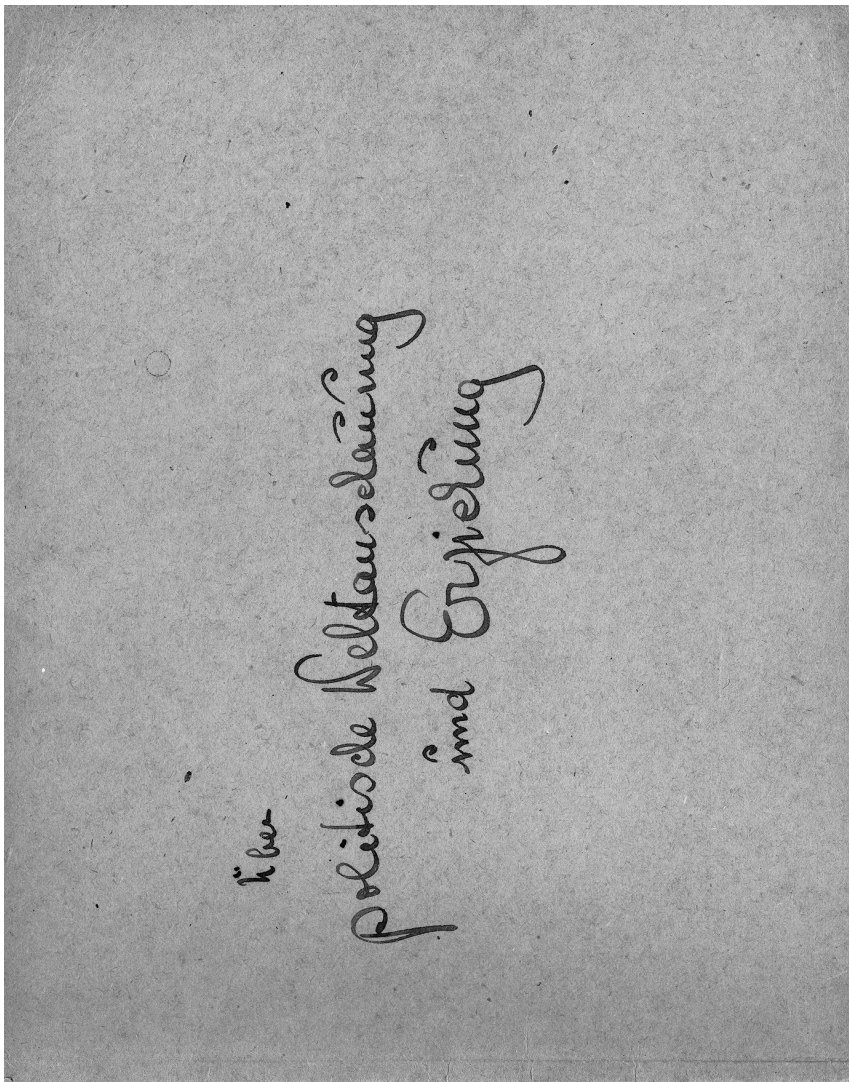 Über
politische Weltanschauung
und Erziehung